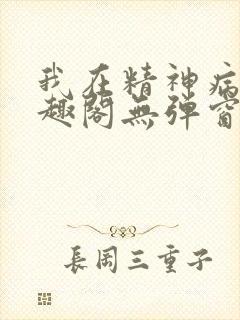 我在精神病
趣阁无弹窗
長岡三重子